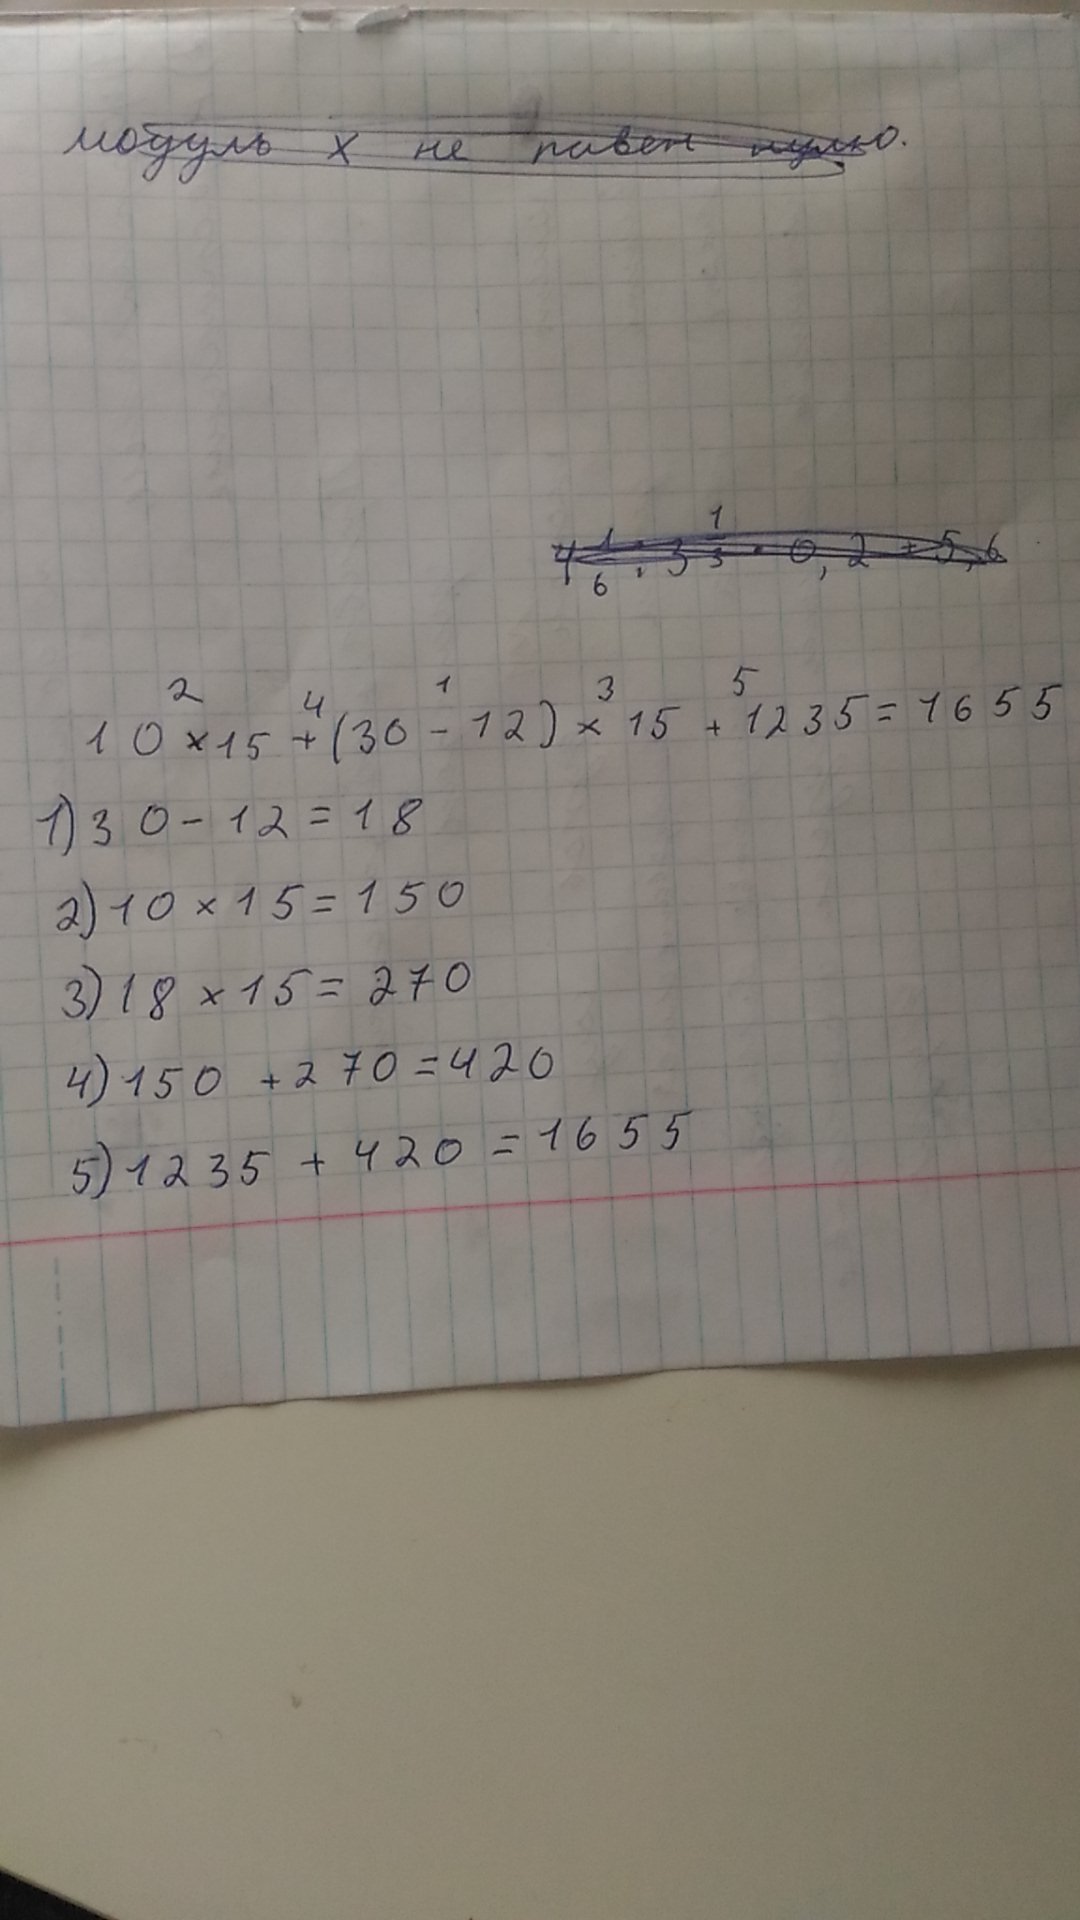 модуль х не равен нулю.
4 1/6 : 3 1/3 · 0,2 + 5,6
10 × 15 + (30 - 12) × 15 + 1235 = 1655
2 4 1 3 5
1) 30 - 12 = 18
2) 10 × 15 = 150
3) 18 × 15 = 270
4) 150 + 270 = 420
5) 1235 + 420 = 1655